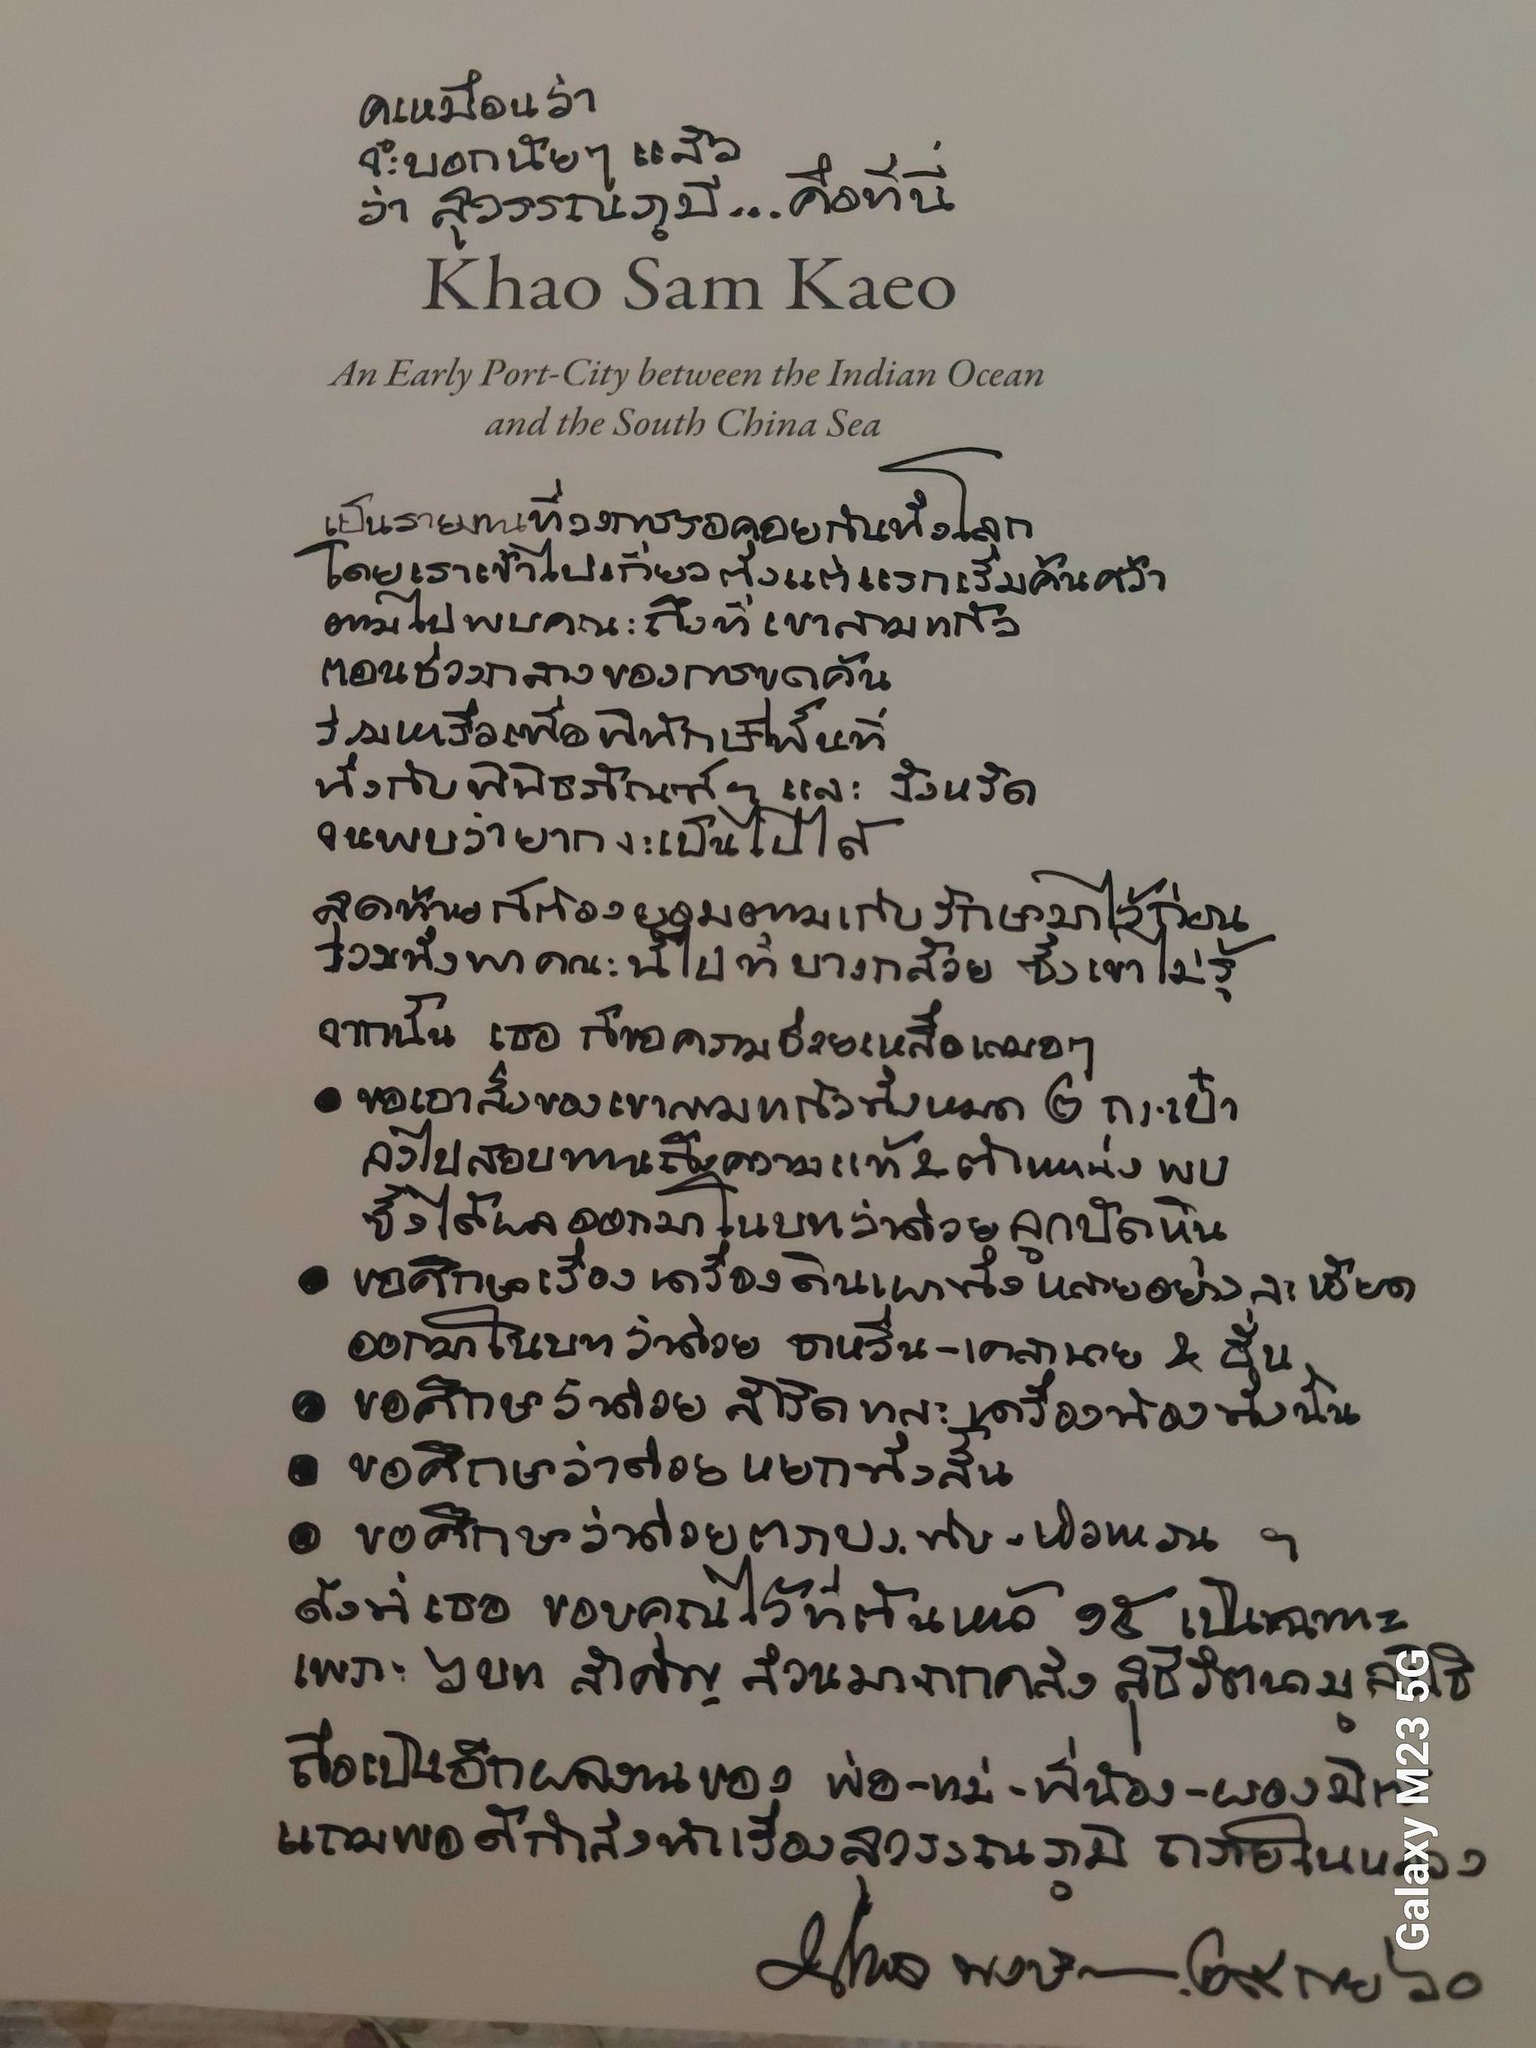 คเหมือนว่า
จะบอกนัยๆ แล้ว
ว่า สุวรรณภูมิ...คือที่นี่
Khao Sam Kaeo
An Early Port-City between the Indian Ocean
and the South China Sea
เป็นรายงานที่วงการรอคอยกันทั้งโลก
โดยเราเข้าไปเกี่ยวตั้งแต่แรกเริ่มค้นคว้า
ตามไปพบคณะถึงที่เขาสามแก้ว
ตอนช่วงกลางของการขุดค้น
ร่วมหารือเพื่อพิทักษ์พื้นที่
ทั้งกับพิพิธภัณฑ์ฯ และ จังหวัด
จนพบว่ายากจะเป็นไปได้
สุดท้ายก็ต้องยอมตามเก็บรักษามาไว้ก่อน
รวมทั้งพาคณะนี้ไปที่บางกล้วย ซึ่งเขาไม่รู้
จากนั้น เธอ ก็ขอความช่วยเหลือเสมอๆ
● ขอเอาสิ่งของเขาสามแก้วทั้งหมด ๒ กระเป๋า
ลงไปสอบทานถึงความแท้ & ตำแหน่ง พบ
ซึ่งได้ผลออกมาในบทว่าด้วยลูกปัดหิน
● ขอศึกษาเรื่องเครื่องดินเผาทั้งหลายอย่างละเอียด
ออกมาในบทว่าด้วย ซาหวิ่น-คาลานาย & ฮั่น
● ขอศึกษาว่าด้วย สำริดและเครื่องทองทั้งนั้น
● ขอศึกษาว่าด้วยหยกทั้งสิ้น
● ขอศึกษาว่าด้วยตราประทับ-หัวแหวน ฯ
ดังที่เธอ ขอบคุณไว้ที่ต้นหน้า ๑๕ เป็นเฉพาะ
เพราะ ๖ บท สำคัญ ล้วนมาจากคลัง สุธีรัตนามูลนิธิ
ถือเป็นอีกผลงานของ พ่อ-แม่-พี่น้อง-ผองมิตร
แถมพอดีกำลังทำเรื่องสุวรรณภูมิ ถวายในหลวง
๒๙ กย ๖๐
Galaxy M23 5G